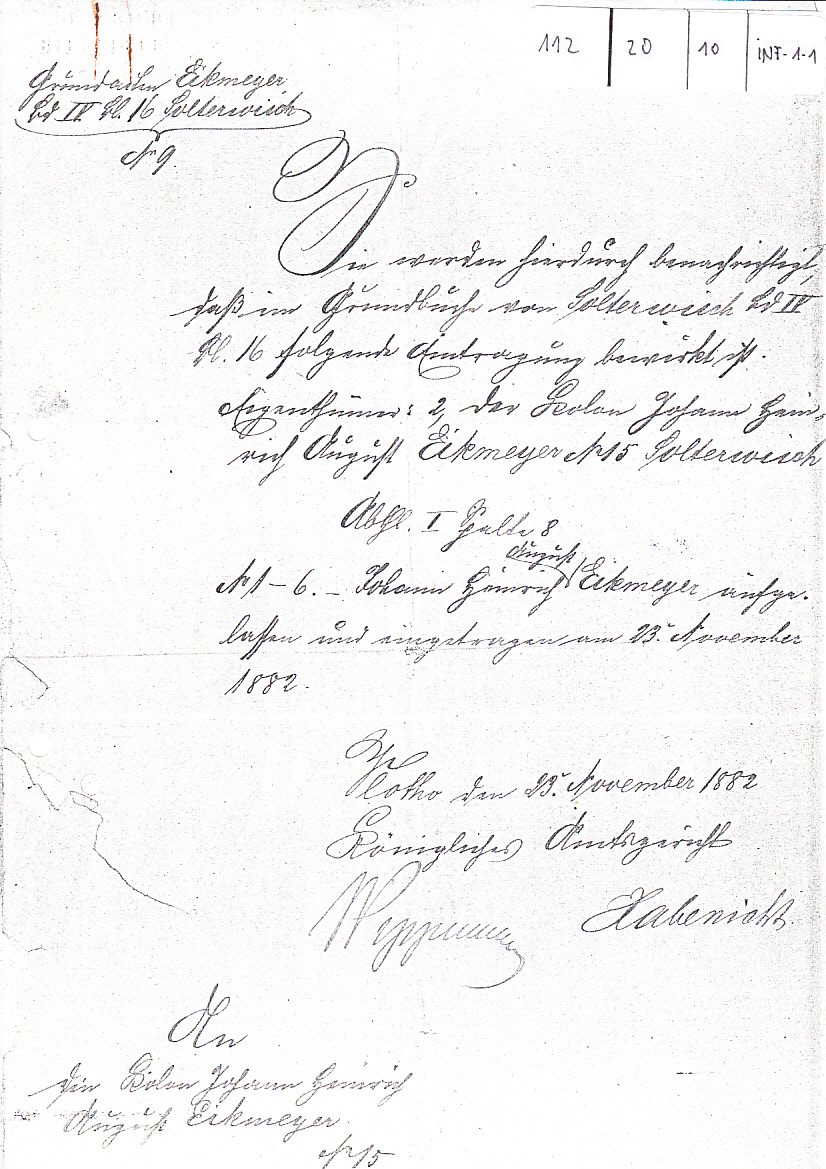 112 20 10 INF-1-1
Grundacten Eikmeyer
Bd IV Bl. 16 Solterwisch
No 9.
Sie werden hierdurch benachrichtigt,
daß im Grundbuche von Solterwisch Bd IV
Bl. 16 folgende Eintragung bewirkt ist.
Eigenthümer: 2, der Kolon Johann Hein-
rich August Eikmeyer No 15 Solterwisch
Abthl. I Spalte 8
August
No 1-6. - Johann Heinrich Eikmeyer aufge-
lassen und eingetragen am 23. November
1882.
Vlotho den 23. November 1882
Königliches Amtsgericht
Habenicht.
An
den Kolon Johann Heinrich
August Eikmeyer
No 15